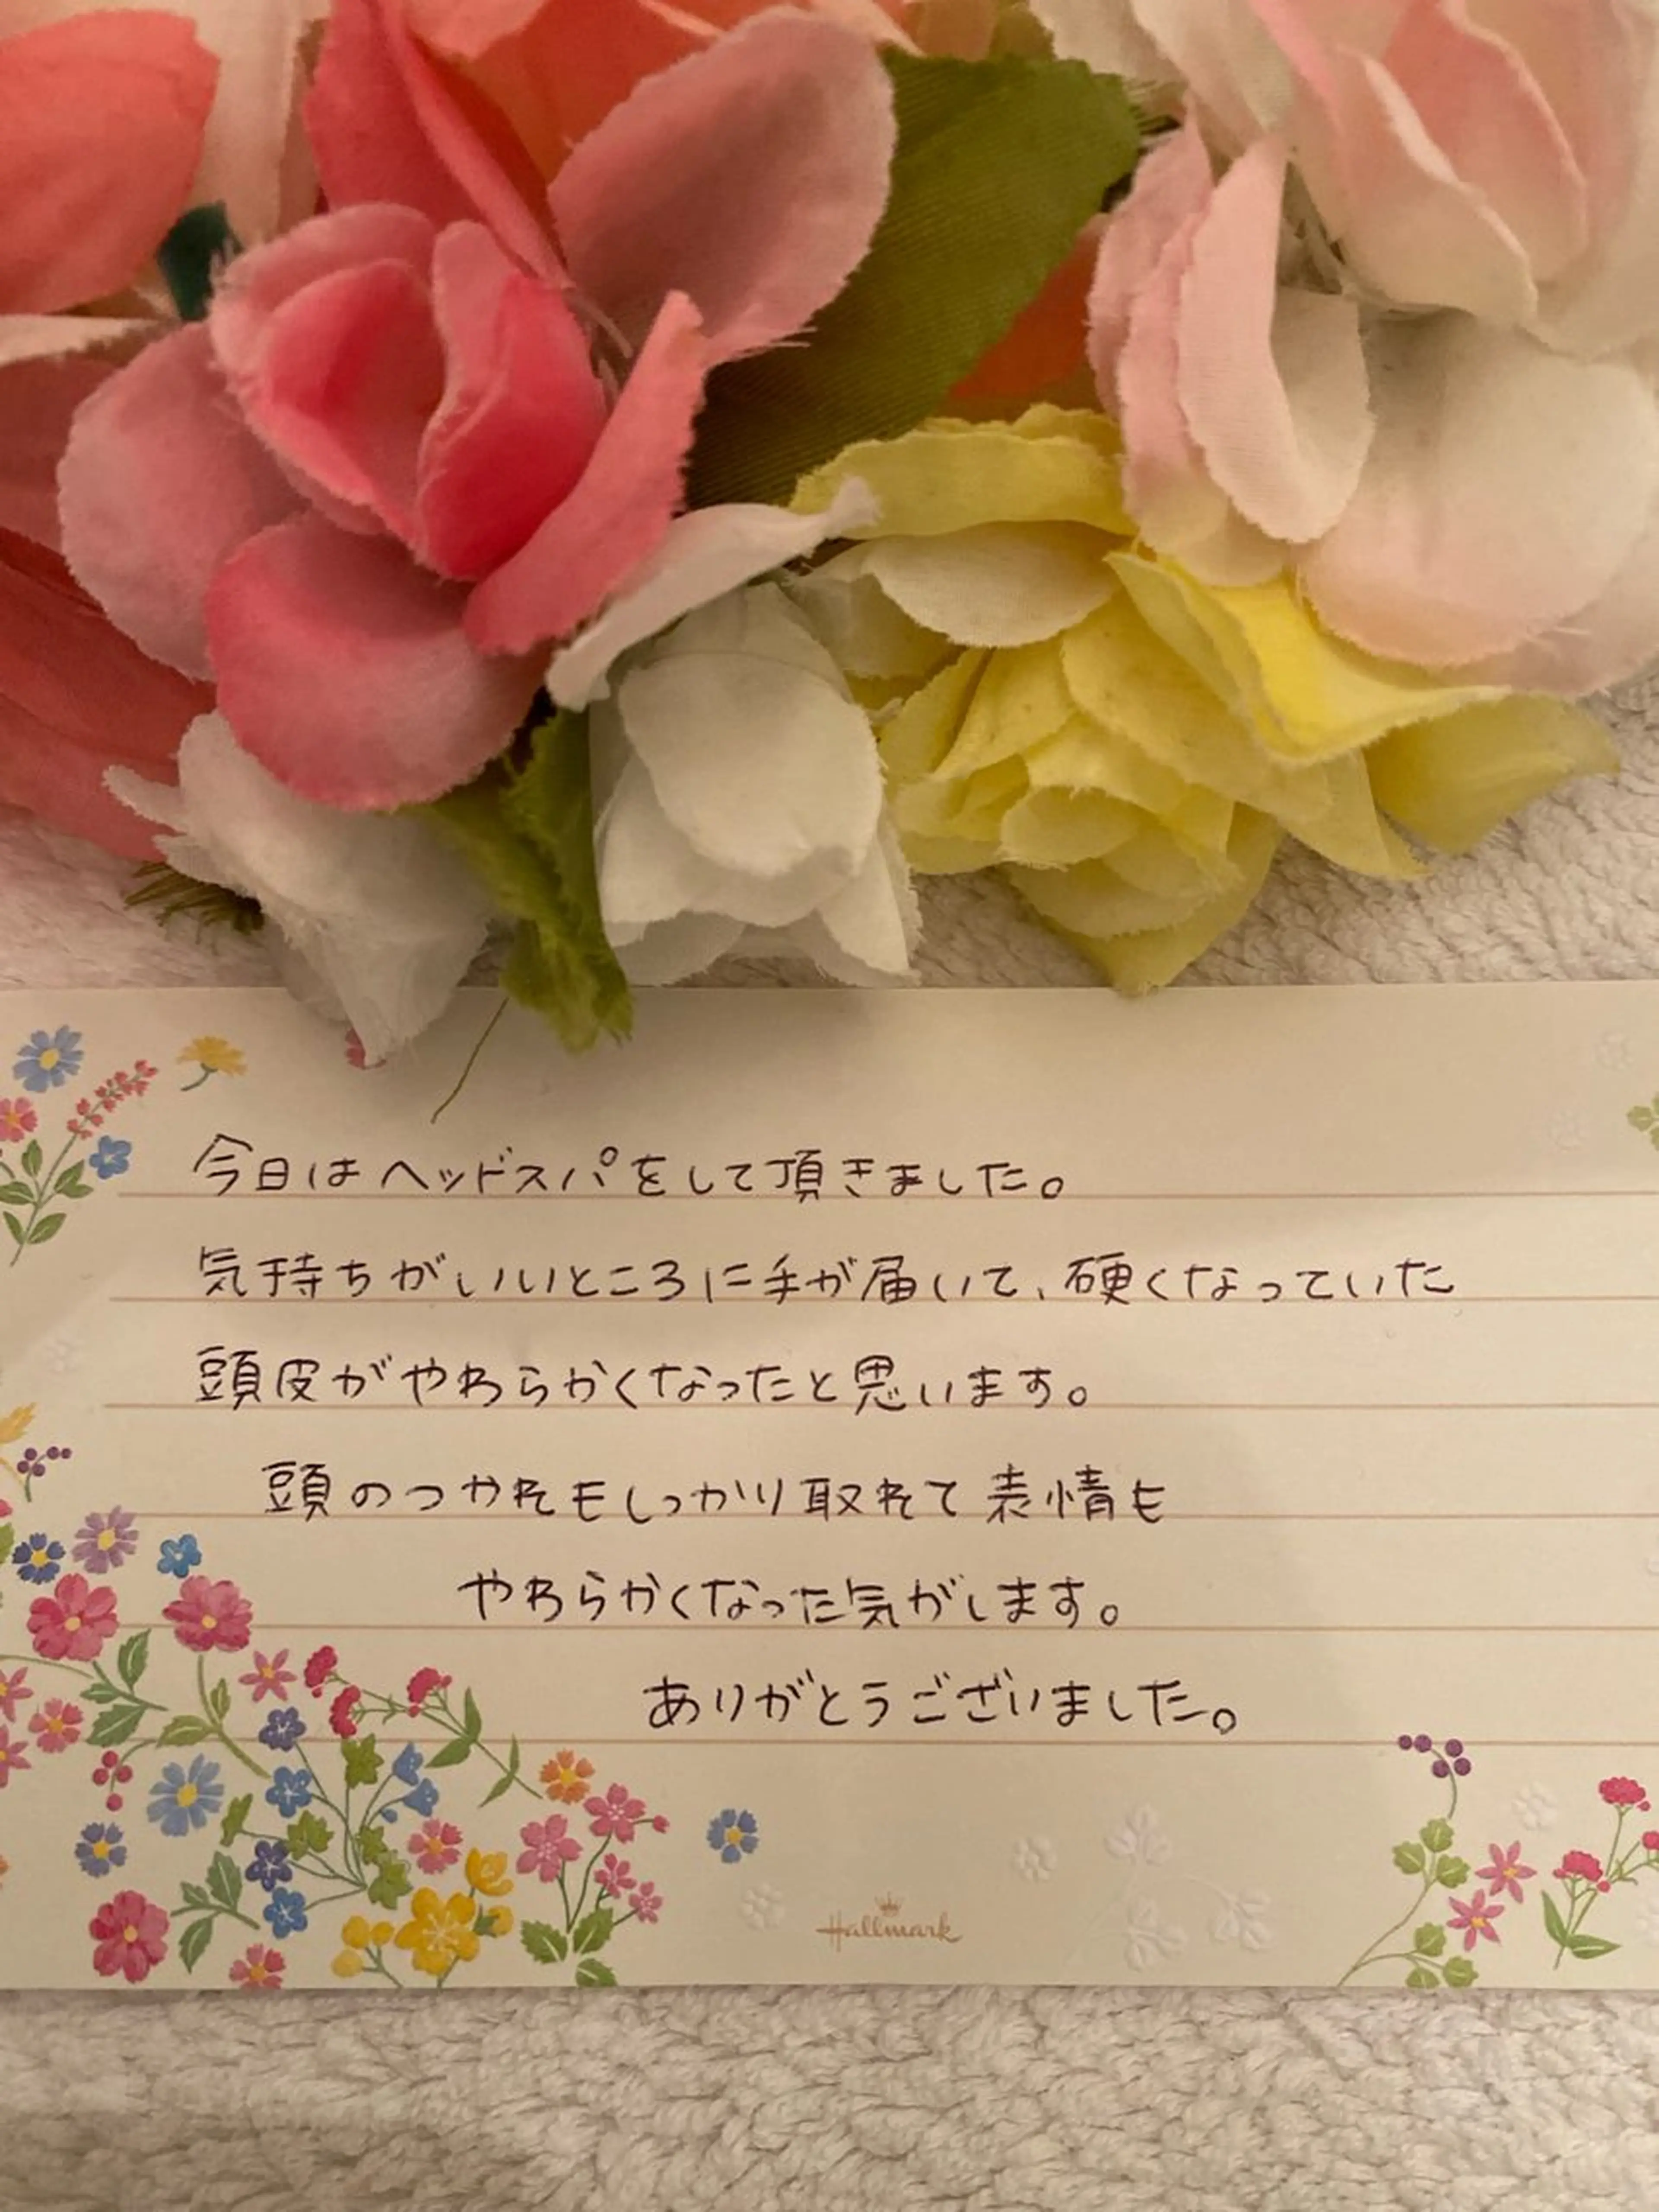 今日はヘッドスパをして頂きました。
気持ちがいいところに手が届いて、硬くなっていた
頭皮がやわらかくなったと思います。
頭のつかれもしっかり取れて表情も
やわらかくなった気がします。
ありがとうございました。
Hallmark